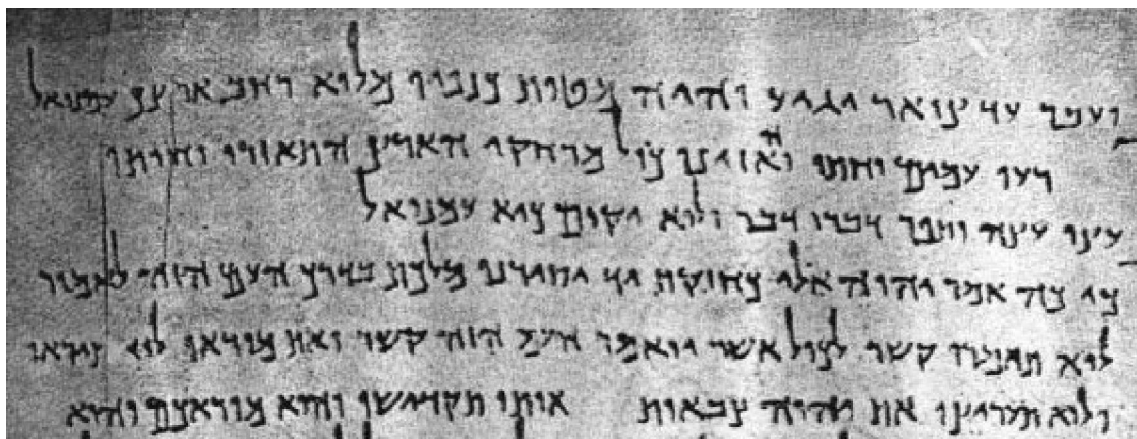 ועבר עד צואר יגיע והיה מטות כנפיו מלוא רחב ארצך עמנואל
רעו עמים וחתו והאזינו כול מרחקי הארץ התאזרו וחותו
עוצו עצה ותפר דברו דבר ולוא יקום כיא עמנואל
כי כה אמר יהוה אלי כחזקת יד יסירנו מלכת בדרך העם הזה לאמור
לוא תאמרון קשר לכול אשר יואמר העם הזה קשר ואת מוראו לוא תיראו
ולוא תעריצו את יהוה צבאות אותו תקדישו והוא מוראכם והוא